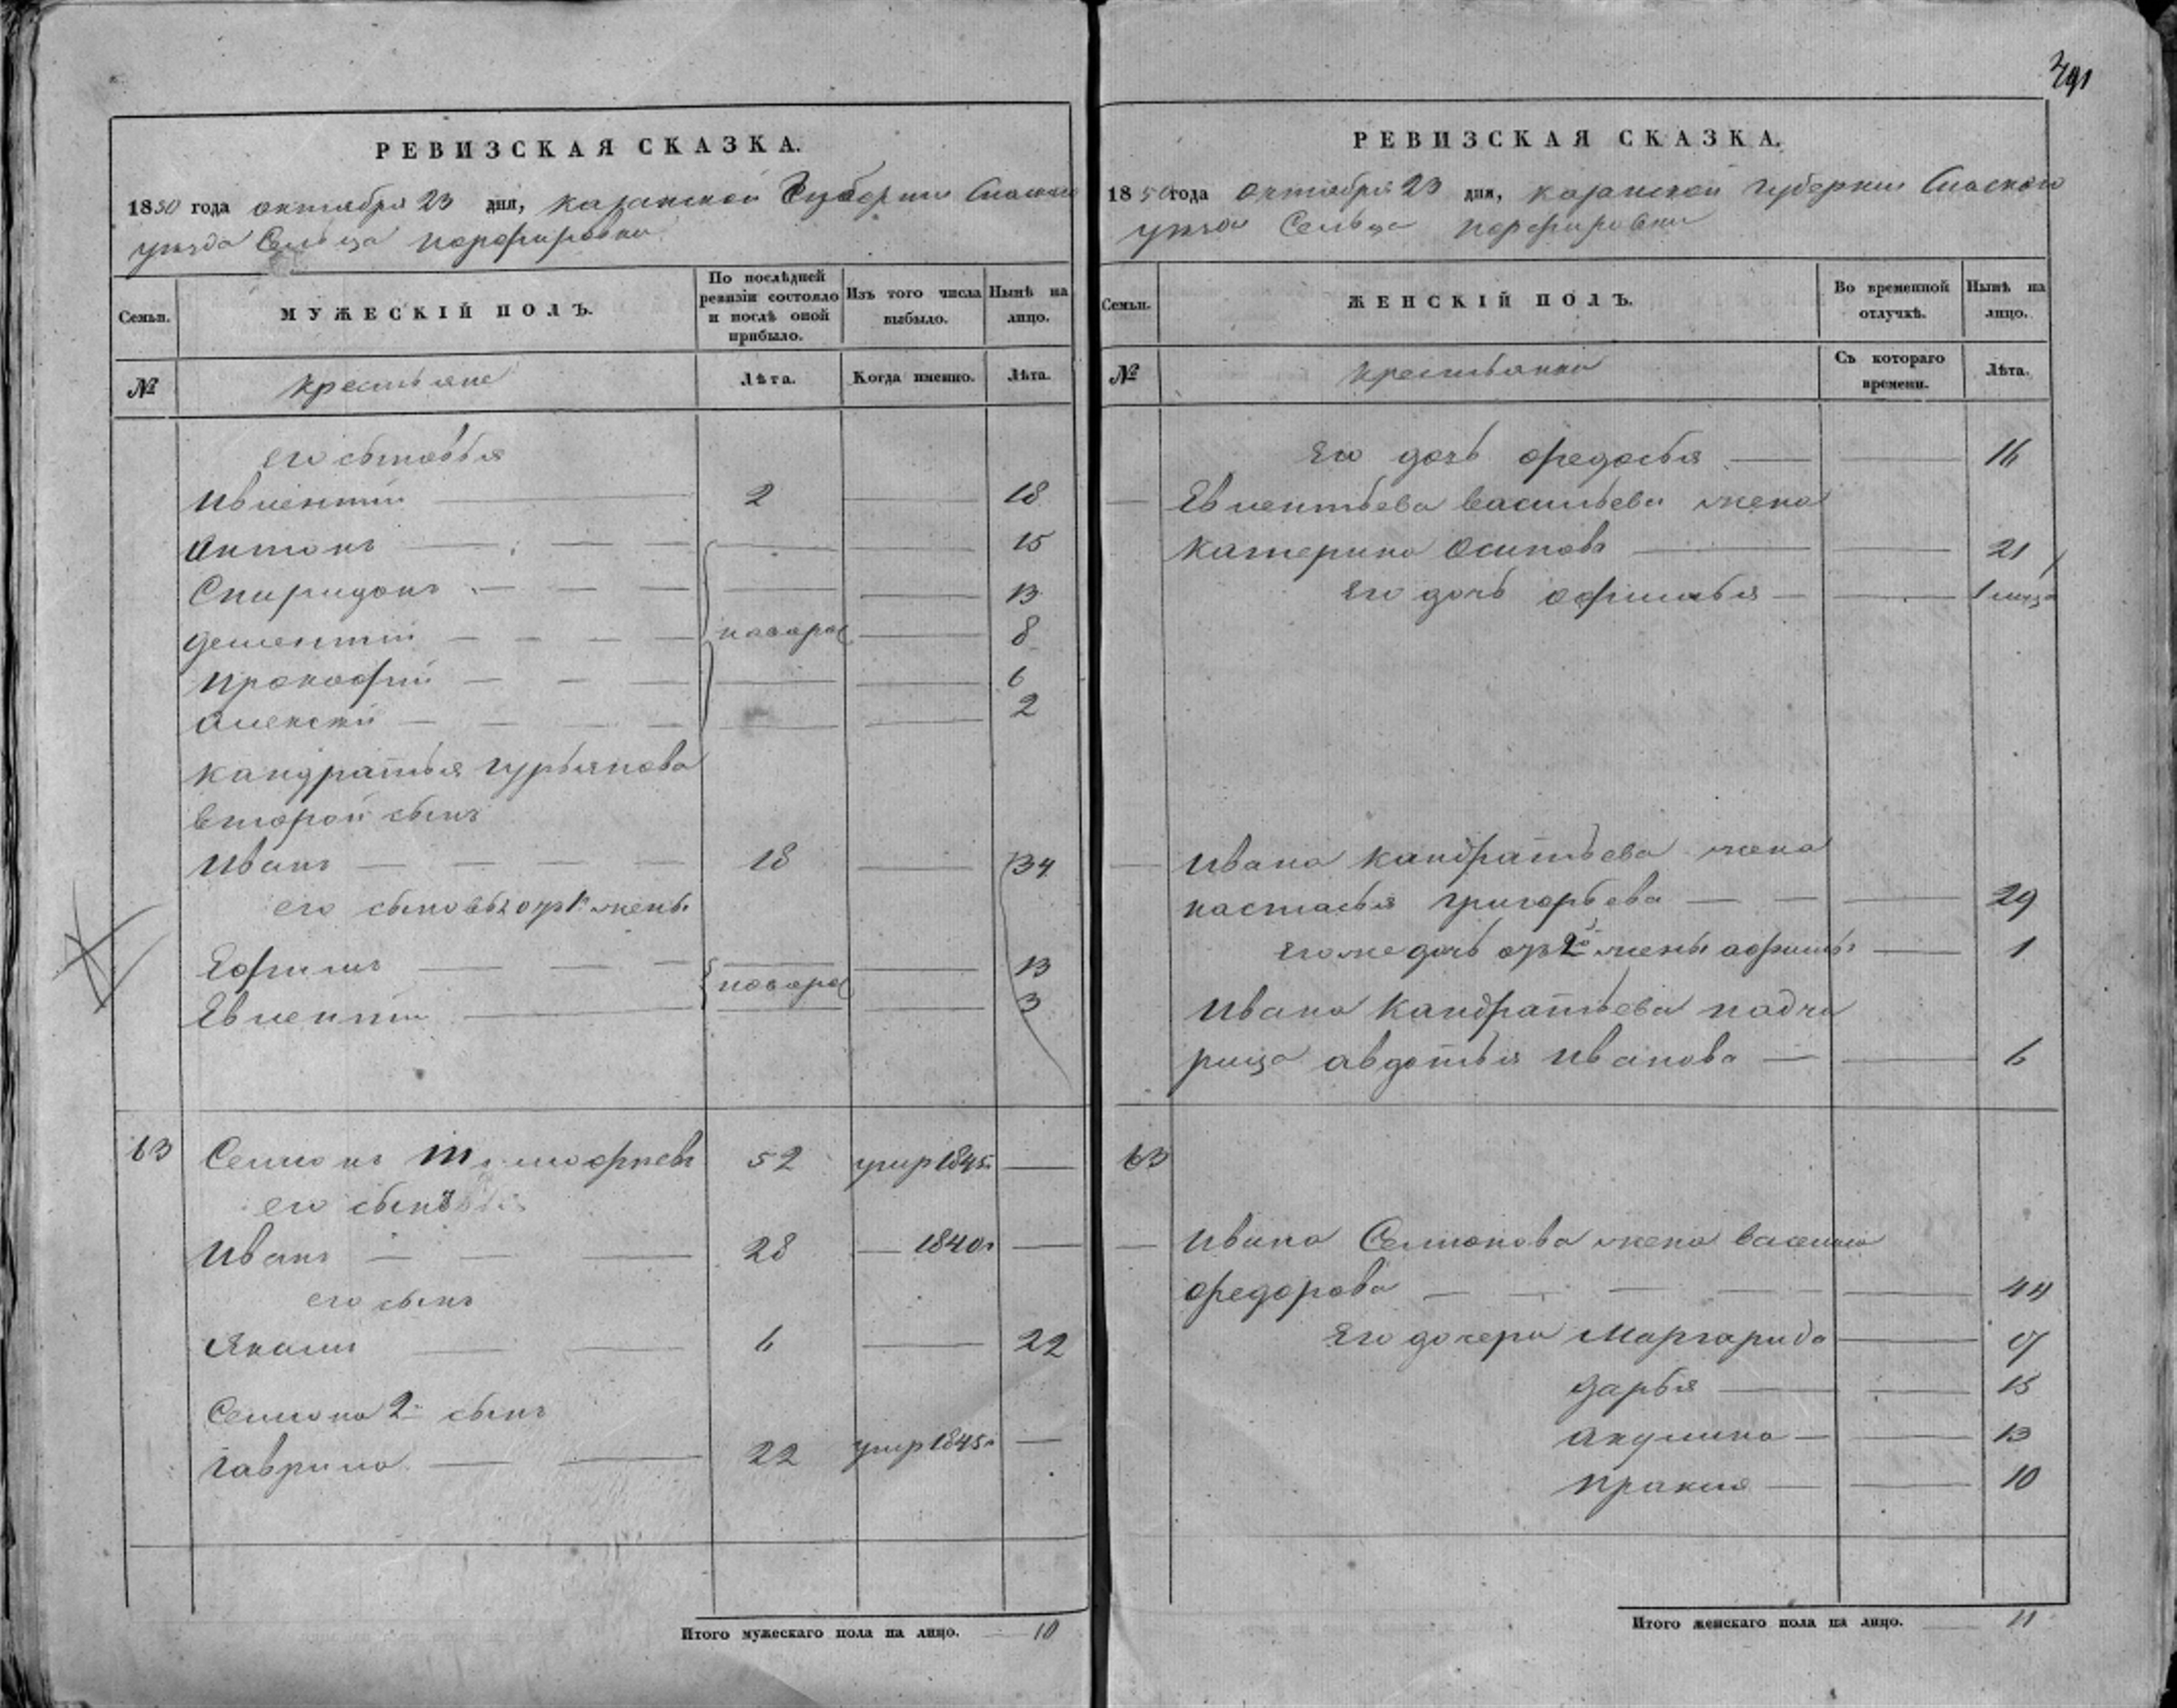 391
РЕВИЗСКАЯ СКАЗКА.
1850 года октября 23 дня, казанской Губернии Спаского
уезда Сельца порфировки
Семьи.
МУЖЕСКІЙ ПОЛЪ.
По послѣдней ревизіи состояло и послѣ оной прибыло.
Изъ того числа выбыло.
Нынѣ на лицо.
№
крестьяне
Лѣта.
Когда именно.
Лѣта.
его сыновья
Ивлентий 2 18
Антонъ 15
Спиридонъ 13
дементий новорож 8
прокофий 6
алексей 2
кандратья гурьянова
второй сынъ
Иванъ 18 34
его сыновья отъ 1й жены
Ефимъ 13
Евлентий новорож 3
63 Семенъ Тимофеевъ 52 умир 1845
его сынъ
Иванъ 28 1840
его сынъ
Якимъ 6 22
Семена 2й сынъ
гаврила 22 умир 1845
Итого мужескаго пола на лицо. 10
РЕВИЗСКАЯ СКАЗКА.
1850 года октября 23 дня, казанской губернии Спаского
уезда Сельца порфировки
Семьи.
ЖЕНСКІЙ ПОЛЪ.
Во временной отлучкѣ.
Нынѣ на лицо.
№
крестьянки
Съ котораго времени.
Лѣта.
Его дочь федосья 16
Евлентьева васильева жена
катерина осипова 21
Его дочь офимья
Ивана кандратьева жена
настасья григорьева 29
Его же дочь отъ 2й жены афимья 1
Ивана кандратьева падче
рица авдотья Иванова 6
63
Ивана Семенова жена василиса
федорова 44
Его дочери Маргарида
дарья 15
акулина 13
пракия 10
Итого женскаго пола на лицо. 11